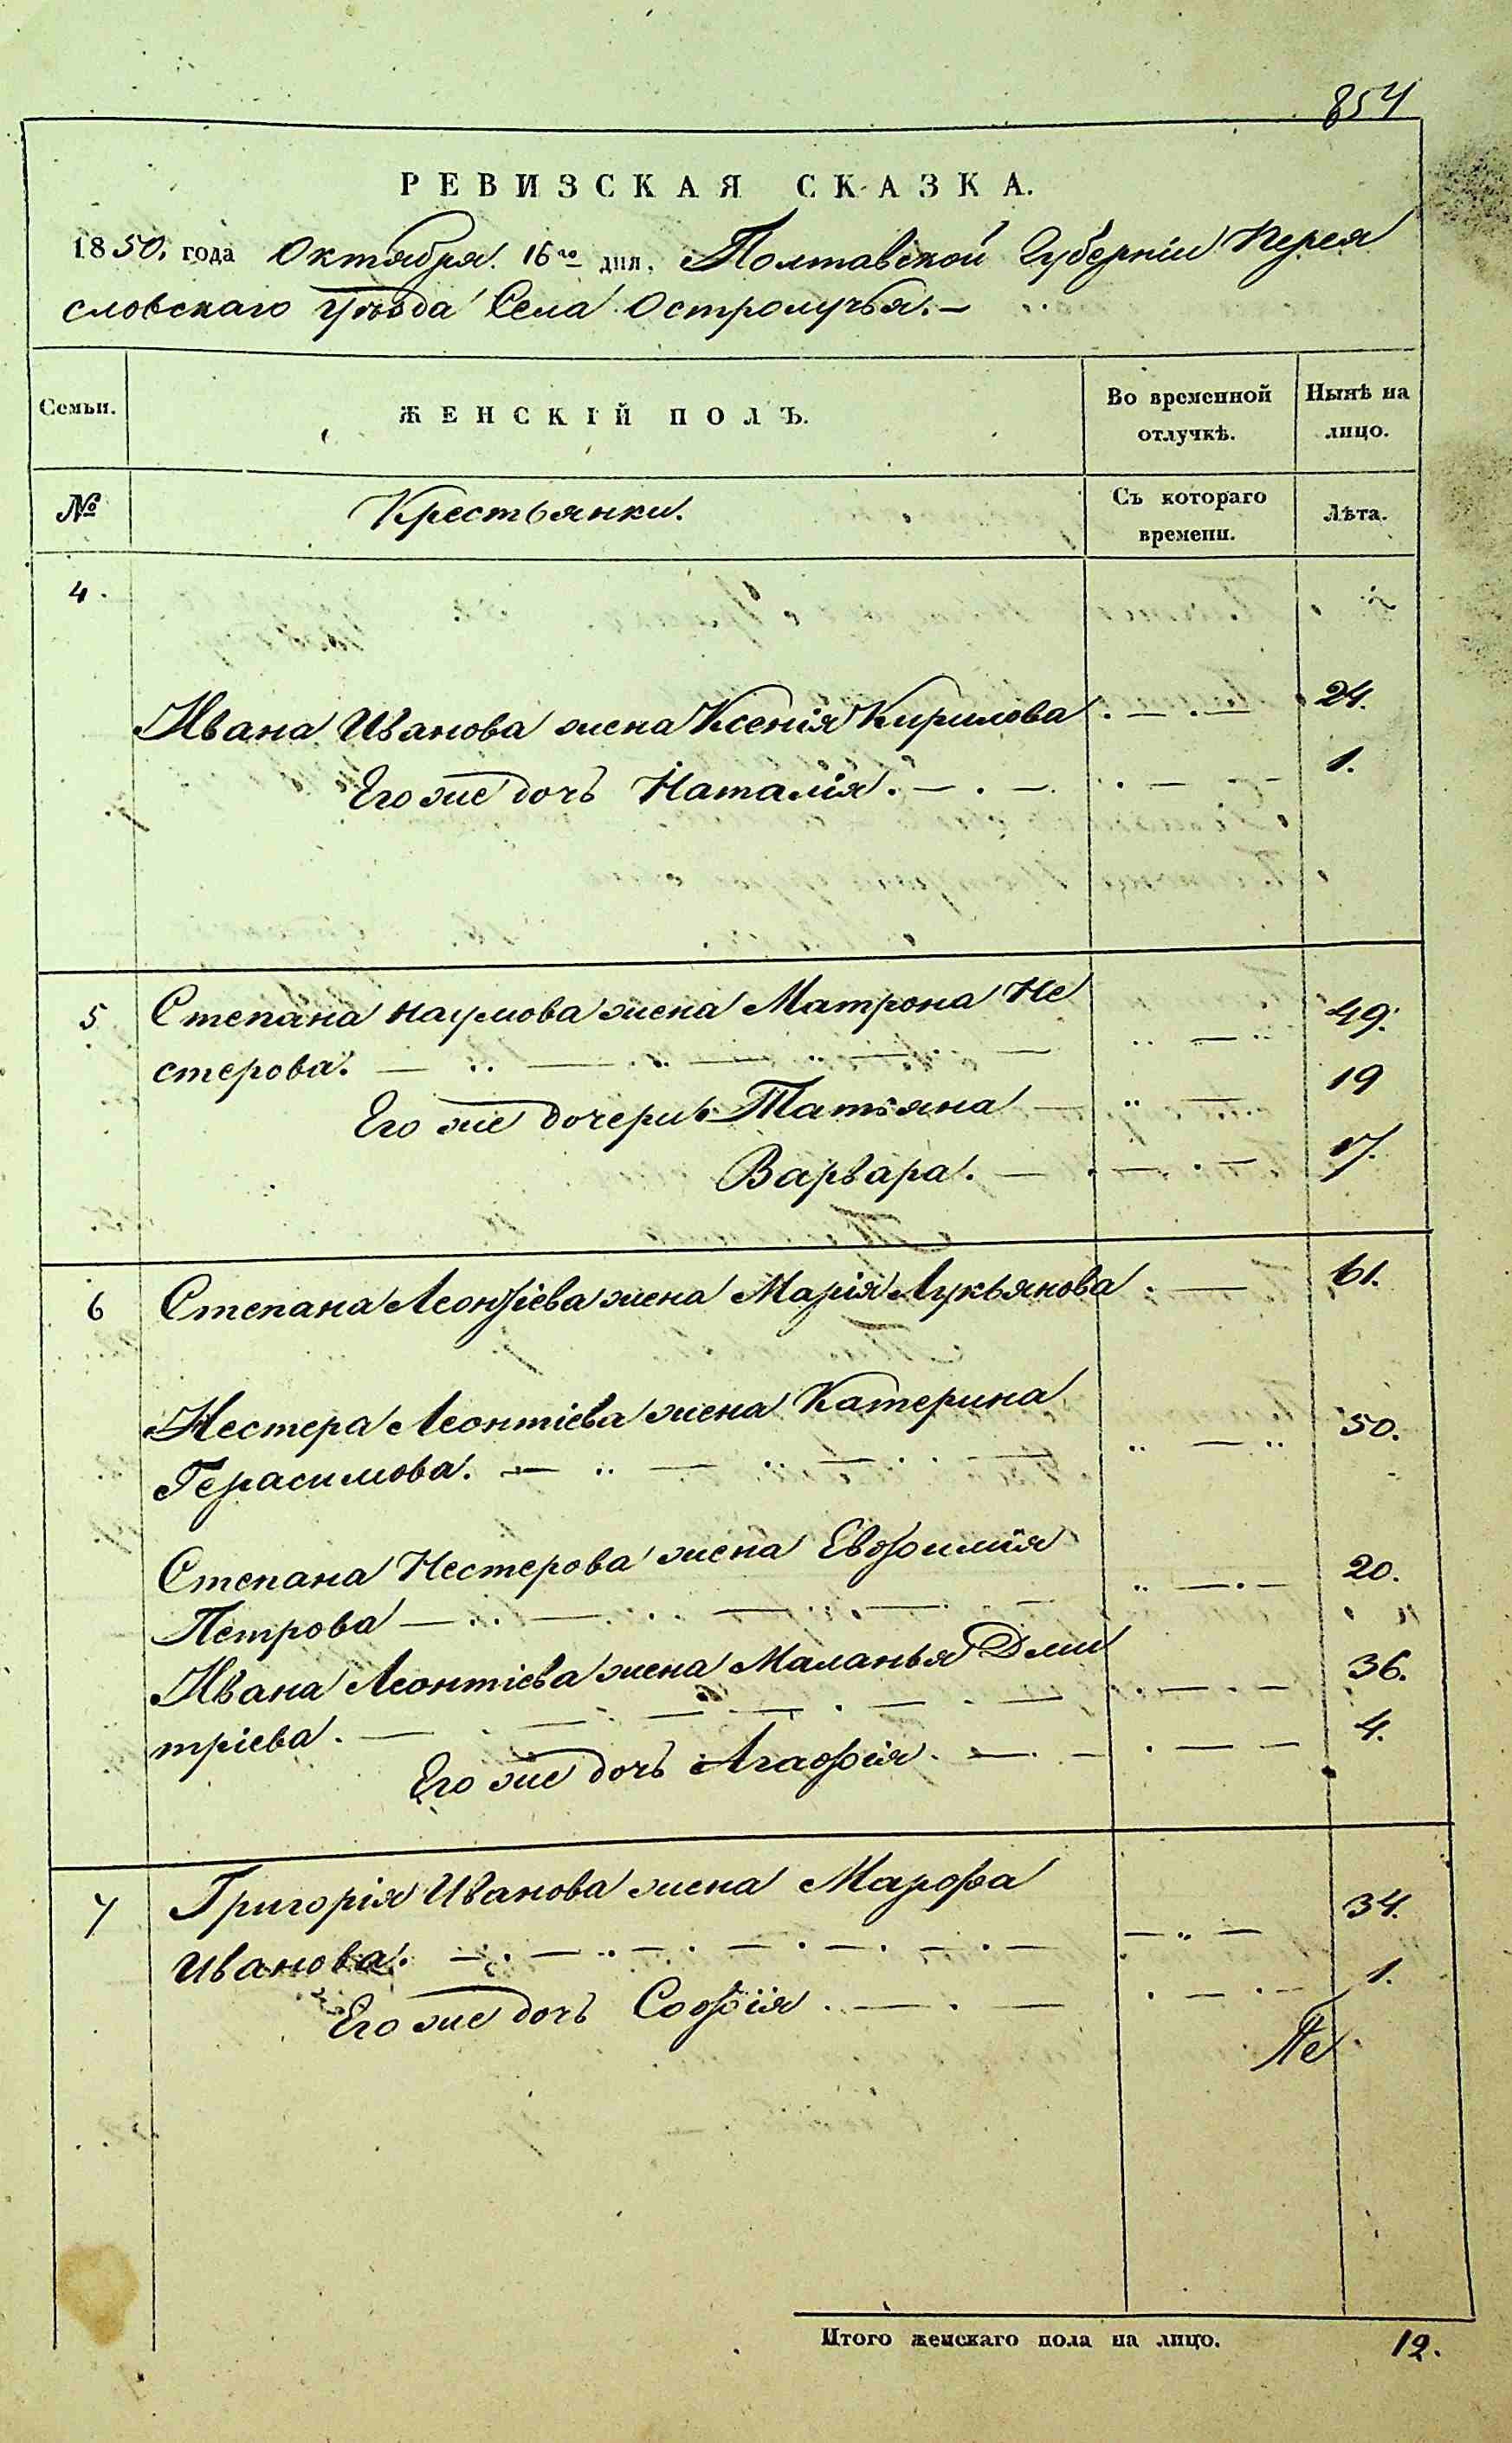 854
РЕВИЗСКАЯ СКАЗКА.
1850, года Октября 16го дня, Полтавской Губерніи Перея
словскаго Уѣзда Села Остролучья. –
Семьи. ЖЕНСКІЙ ПОЛЪ. Во временной отлучкѣ. Нынѣ на лицо.
№ Крестьянки. Съ котораго времени. Лѣта.
4.
Ивана Иванова жена Ксенія Кирилова . — . — 24.
Его же дочь Наталія. — . — . — — 1.
5 Степана Наумова жена Матрона Не
стерова. — .. — .. — .. — .. — .. 49.
Его же дочери Татьяна — .. — 19
Варвара. — . — . — 17.
6 Степана Леонтіева жена Марія Лукьянова . — 61.
Нестера Леонтіева жена Катерина
Герасимова. — .. — .. — . — .. — .. 50.
Степана Нестерова жена Евфимія
Петрова — .. — .. — . — .. — . — 20.
Ивана Леонтіева жена Маланья Дми
тріева. — . — . — — . — . — . — . — 36.
Его же дочь Агафія. — . — . — — 4.
7 Григорія Иванова жена Марфа
Иванова. — . — .. — . — . — . — . — — .. — 34.
Его же дочь Софія. — . — . — . — 1.
Пе
Итого женскаго пола на лицо. 12.